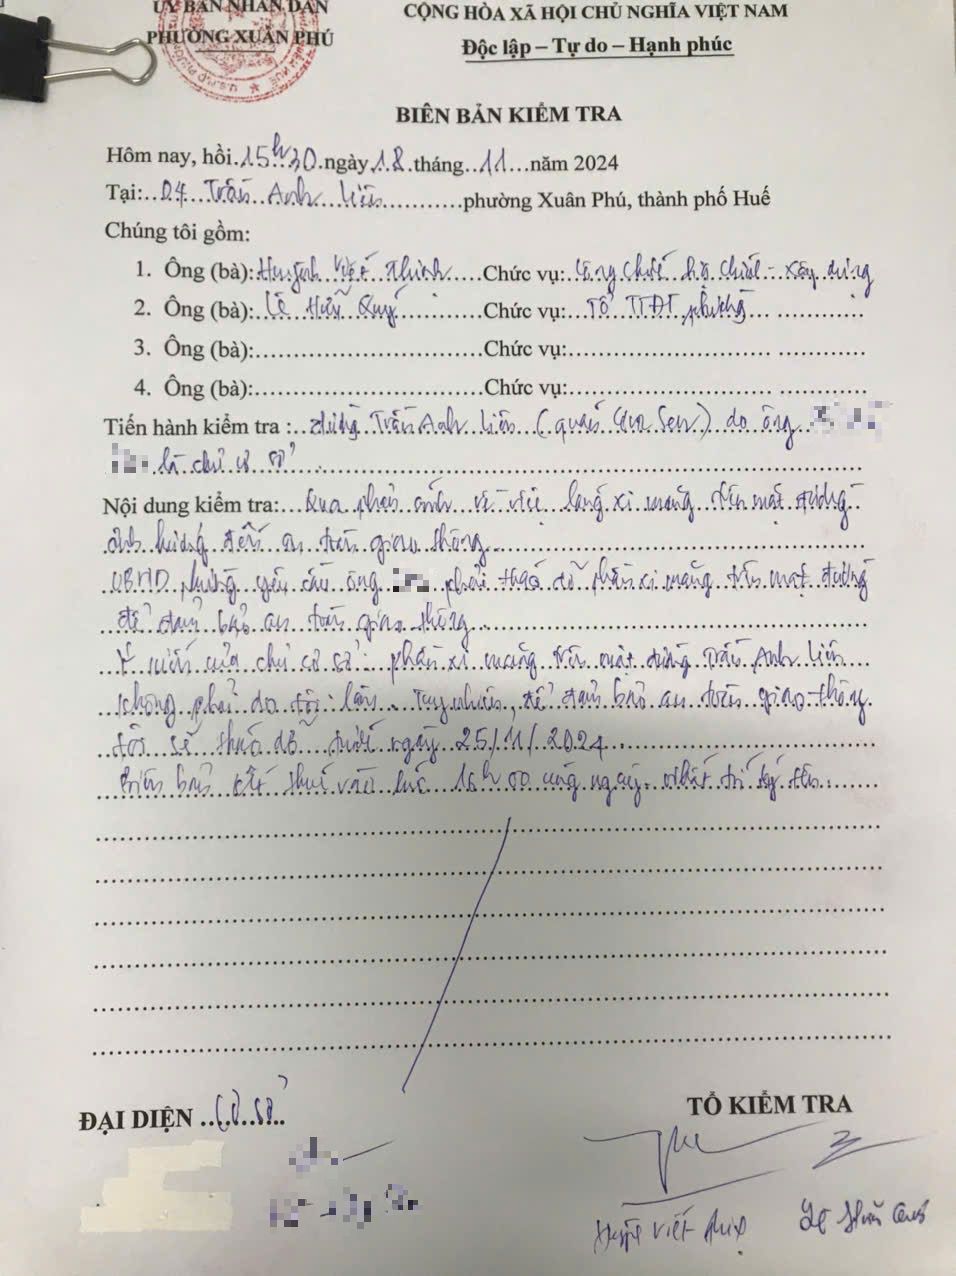 ỦY BAN NHÂN DÂN
PHƯỜNG XUÂN PHÚ
CỘNG HÒA XÃ HỘI CHỦ NGHĨA VIỆT NAM
Độc lập – Tự do – Hạnh phúc
BIÊN BẢN KIỂM TRA
Hôm nay, hồi 15h30 ngày 18 tháng 11 năm 2024
Tại: 04 Trần Anh Liên phường Xuân Phú, thành phố Huế
Chúng tôi gồm:
1. Ông (bà): Huỳnh Viết Thịnh Chức vụ: Công chức địa chính - xây dựng
2. Ông (bà): Lê Hữu Quý Chức vụ: Tổ TTĐT phường
3. Ông (bà): Chức vụ:
4. Ông (bà): Chức vụ:
Tiến hành kiểm tra : đường Trần Anh Liên (quán Sen) do ông
là chủ cơ sở
Nội dung kiểm tra: Qua phản ánh về việc láng xi măng trên mặt đường
ảnh hưởng đến an toàn giao thông
UBND phường yêu cầu ông phải tháo dỡ phần xi măng trên mặt đường
để đảm bảo an toàn giao thông
Ý kiến của chủ cơ sở: phần xi măng trên mặt đường Trần Anh Liên
không phải do tôi làm. Tuy nhiên, để đảm bảo an toàn giao thông
tôi sẽ tháo dỡ trước ngày 25/11/2024
Biên bản kết thúc vào lúc 16h00 cùng ngày. nhất trí ký tên
ĐẠI DIỆN Cơ sở
TỔ KIỂM TRA
Huỳnh Viết Thịnh Lê Hữu Quý